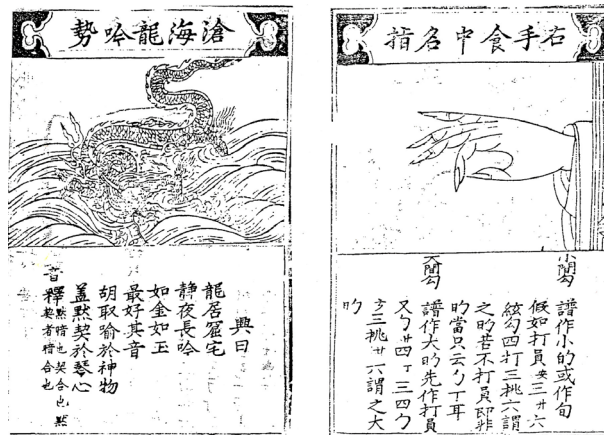 右手食中名指
譜作小的或作句
假如打員三廾六
絃勾四打三挑六謂
之的若不打員即非
的當只云勹丁耳
譜作大的先作打員
又勹廾四丁三四勹
三挑廾六謂之大
的
滄海龍吟勢
興曰
龍居窟宅
静夜長吟
如金如玉
最好其音
胡取喻於神物
蓋默契於琴心
音釋默暗也契合也默
契者暗合也